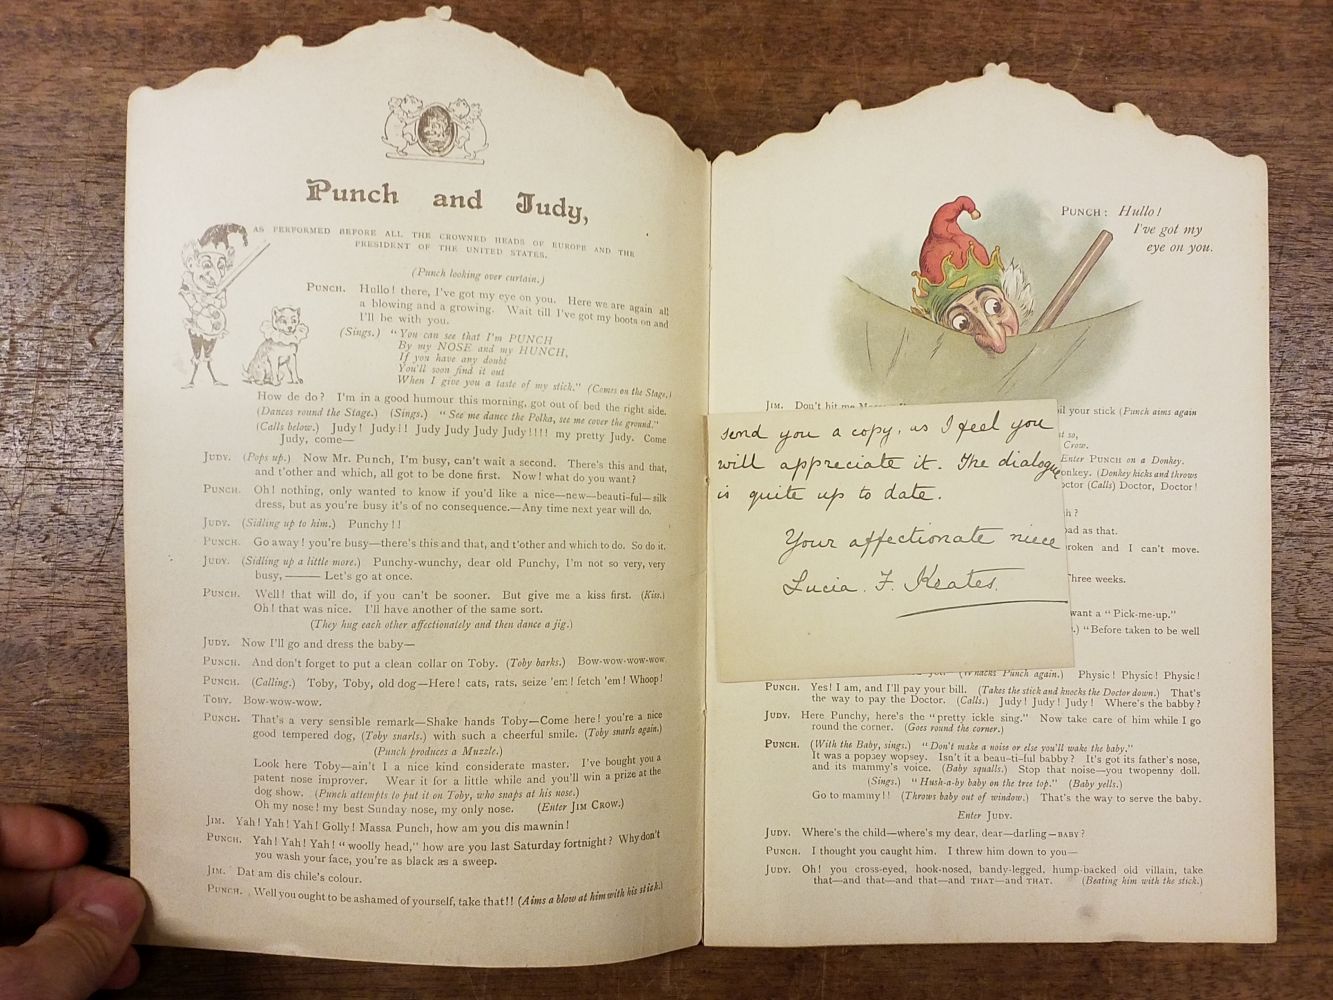 Punch and Judy,
AS PERFORMED BEFORE ALL THE CROWNED HEADS OF EUROPE AND THE
PRESIDENT OF THE UNITED STATES.
(Punch looking over curtain.)
PUNCH. Hullo! there, I've got my eye on you. Here we are again all
a blowing and a growing. Wait till I've got my boots on and
I'll be with you.
(Sings.) "You can see that I'm PUNCH
By my NOSE and my HUNCH,
If you have any doubt
You'll soon find it out
When I give you a taste of my stick." (Comes on the Stage.)
How de do? I'm in a good humour this morning, got out of bed the right side.
(Dances round the Stage.) (Sings.) "See me dance the Polka, see me cover the ground."
(Calls below.) Judy! Judy!! Judy Judy Judy Judy!!!! my pretty Judy. Come
Judy, come—
JUDY. (Pops up.) Now Mr. Punch, I'm busy, can't wait a second. There's this and that,
and t'other and which, all got to be done first. Now! what do you want?
PUNCH. Oh! nothing, only wanted to know if you'd like a nice—new—beauti-ful—silk
dress, but as you're busy it's of no consequence.—Any time next year will do.
JUDY. (Sidling up to him.) Punchy!!
PUNCH. Go away! you're busy—there's this and that, and t'other and which to do. So do it.
JUDY. (Sidling up a little more.) Punchy-wunchy, dear old Punchy, I'm not so very, very
busy, —— Let's go at once.
PUNCH. Well! that will do, if you can't be sooner. But give me a kiss first. (Kiss.)
Oh! that was nice. I'll have another of the same sort.
(They hug each other affectionately and then dance a jig.)
JUDY. Now I'll go and dress the baby—
PUNCH. And don't forget to put a clean collar on Toby. (Toby barks.) Bow-wow-wow-wow.
PUNCH. (Calling.) Toby, Toby, old dog—Here! cats, rats, seize 'em! fetch 'em! Whoop!
TOBY. Bow-wow-wow.
PUNCH. That's a very sensible remark—Shake hands Toby—Come here! you're a nice
good tempered dog, (Toby snarls.) with such a cheerful smile. (Toby snarls again.)
(Punch produces a Muzzle.)
Look here Toby—ain't I a nice kind considerate master. I've bought you a
patent nose improver. Wear it for a little while and you'll win a prize at the
dog show. (Punch attempts to put it on Toby, who snaps at his nose.)
Oh my nose! my best Sunday nose, my only nose. (Enter JIM CROW.)
JIM. Yah! Yah! Yah! Golly! Massa Punch, how am you dis mawnin!
PUNCH. Yah! Yah! Yah! "woolly head," how are you last Saturday fortnight? Why don't
you wash your face, you're as black as a sweep.
JIM. Dat am dis chile's colour.
PUNCH. Well you ought to be ashamed of yourself, take that!! (Aims a blow at him with his stick.)
PUNCH: Hullo!
I've got my
eye on you.
JIM. Don't hit me
your stick (Punch aims again
so,
Crow.
Enter PUNCH on a Donkey.
Donkey. (Donkey kicks and throws
Doctor (Calls) Doctor, Doctor!
bad as that.
broken and I can't move.
Three weeks.
want a "Pick-me-up."
"Before taken to be well
send you a copy, as I feel you
will appreciate it. The dialogue
is quite up to date.
Your affectionate niece
Lucia. F. Keates.
(Whacks Punch again.) Physic! Physic! Physic!
PUNCH. Yes! I am, and I'll pay your bill. (Takes the stick and knocks the Doctor down.) That's
the way to pay the Doctor. (Calls.) Judy! Judy! Judy! Where's the babby?
JUDY. Here Punchy, here's the "pretty ickle sing." Now take care of him while I go
round the corner. (Goes round the corner.)
PUNCH. (With the Baby, sings.) "Don't make a noise or else you'll wake the baby."
It was a popsey wopsey. Isn't it a beau-ti-ful babby? It's got its father's nose,
and its mammy's voice. (Baby squalls.) Stop that noise—you twopenny doll.
(Sings.) "Hush-a-by baby on the tree top." (Baby yells.)
Go to mammy!! (Throws baby out of window.) That's the way to serve the baby.
Enter JUDY.
JUDY. Where's the child—where's my dear, dear—darling—BABY?
PUNCH. I thought you caught him. I threw him down to you—
JUDY. Oh! you cross-eyed, hook-nosed, bandy-legged, hump-backed old villain, take
that—and that—and that—and THAT—and THAT. (Beating him with the stick.)